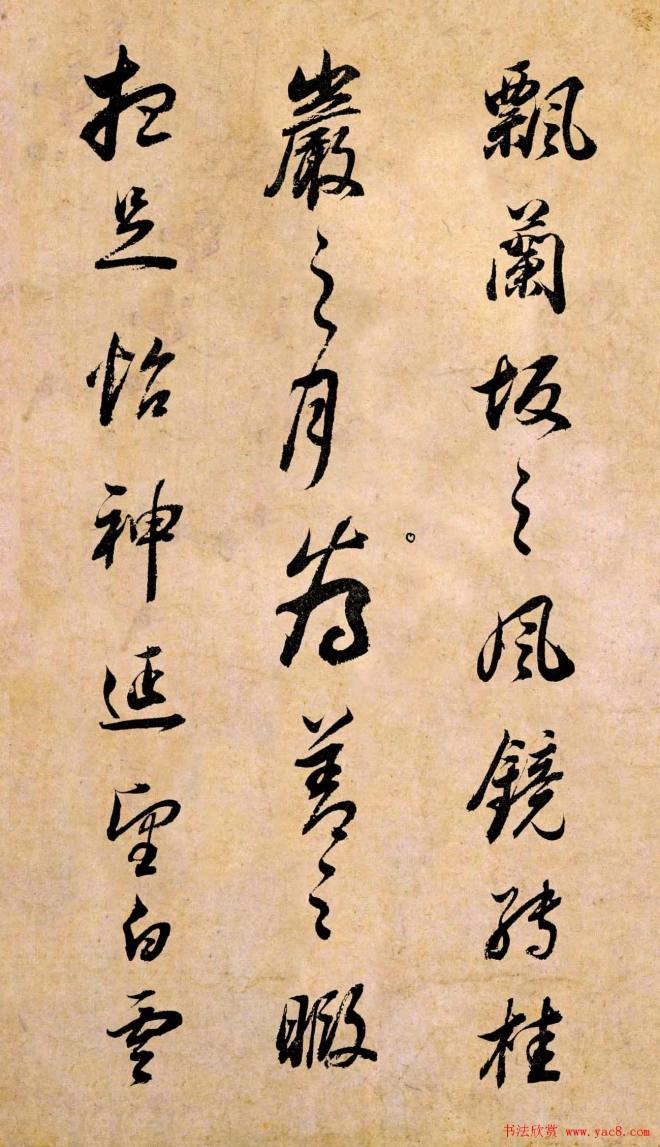 飄蘭坂之風鏡轉桂
巖之月為善之暇
想足怡神延望白雲
书法欣赏 www.yac8.com